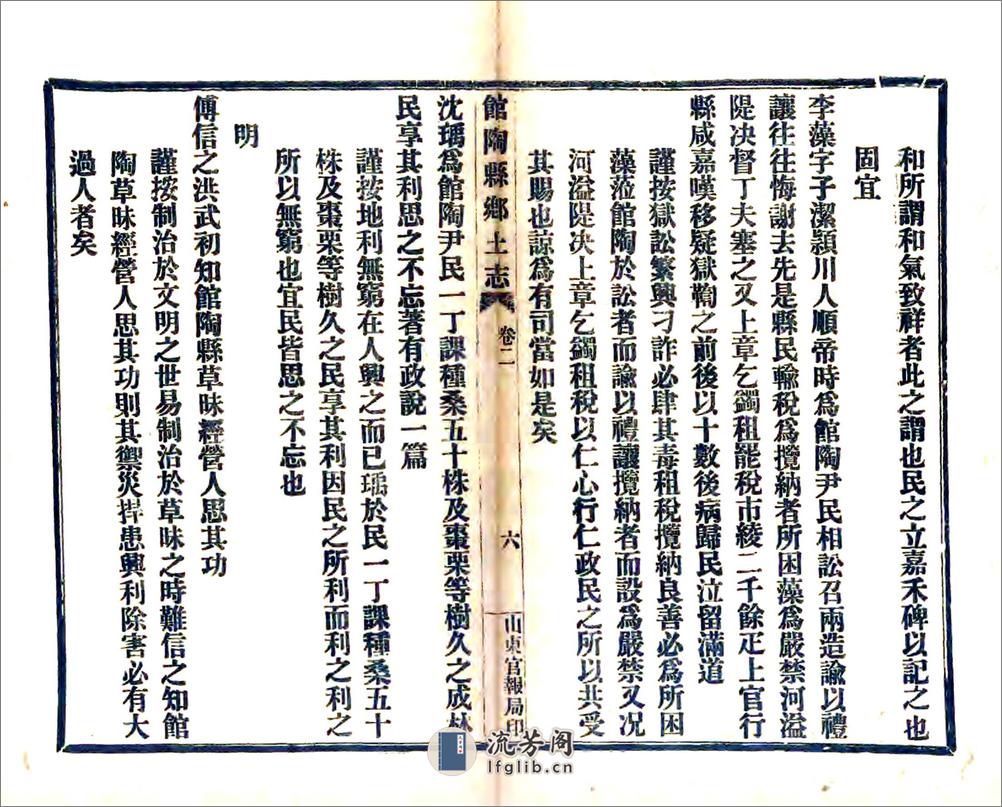 和所謂和氣致祥者此之謂也民之立嘉禾碑以記之也
固宜
李藻字子潔潁川人順帝時爲館陶尹民相訟召兩造諭以禮
讓往往悔謝去先是縣民輸稅爲攬納者所困藻爲嚴禁河溢
隄决督丁夫塞之又上章乞蠲租罷稅市綾二千餘疋上官行
縣咸嘉嘆移疑獄鞫之前後以十數後病歸民泣留滿道
謹按獄訟繁興刁詐必肆其毒租稅攬納良善必爲所困
藻蒞館陶於訟者而諭以禮讓攬納者而設爲嚴禁又况
河溢隄决上章乞蠲租稅以仁心行仁政民之所以共受
其賜也諒爲有司當如是矣
館陶縣鄉土志
卷二
六
山東官報局印
沈瑀爲館陶尹民一丁課種桑五十株及棗栗等樹久之成林
民享其利思之不忘著有政說一篇
謹按地利無窮在人興之而已瑀於民一丁課種桑五十
株及棗栗等樹久之民享其利因民之所利而利之利之
所以無窮也宜民皆思之不忘也
明
傅信之洪武初知館陶縣草昧經營人思其功
謹按制治於文明之世易制治於草昧之時難信之知館
陶草昧經營人思其功則其禦災捍患興利除害必有大
過人者矣
流芳阁
lfglib.cn